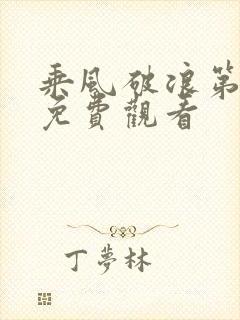 乘风破浪第
免費觀看
丁夢林